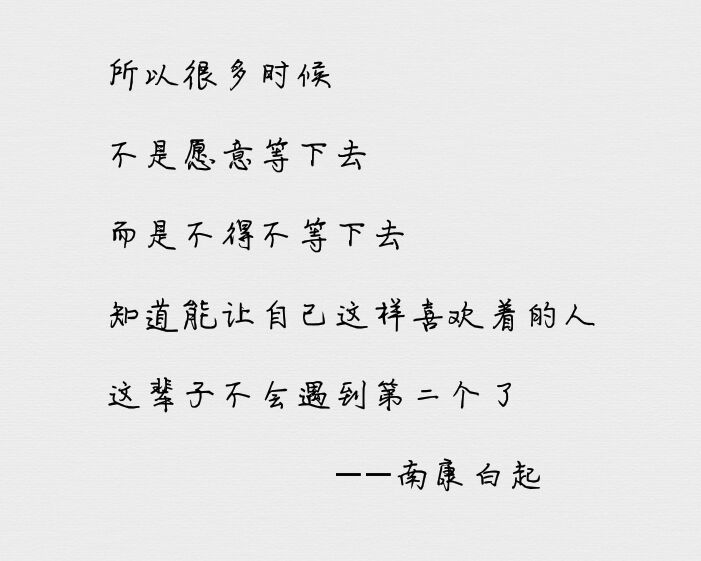 所以很多时候
不是愿意等下去
而是不得不等下去
知道能让自己这样喜欢着的人
这辈子不会遇到第二个了
——南康白起